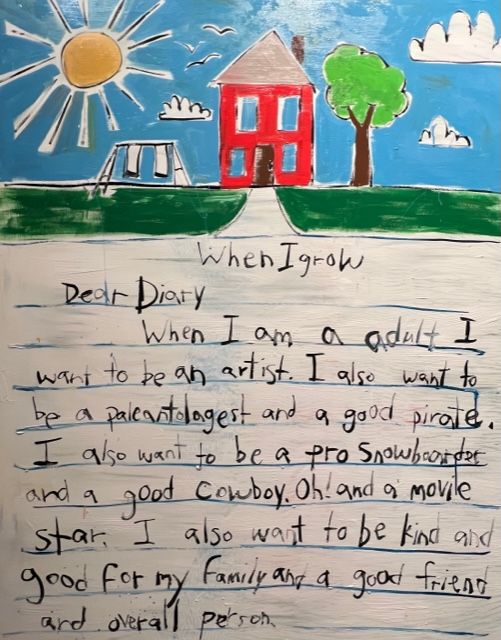 When I grow
Dear Diary
When I am a adult I
want to be an artist. I also want to
be a paleantologest and a good pirate.
I also want to be a pro snowboarder
and a good cowboy. Oh! and a movie
star. I also want to be kind and
good for my family and a good friend
and overall person.